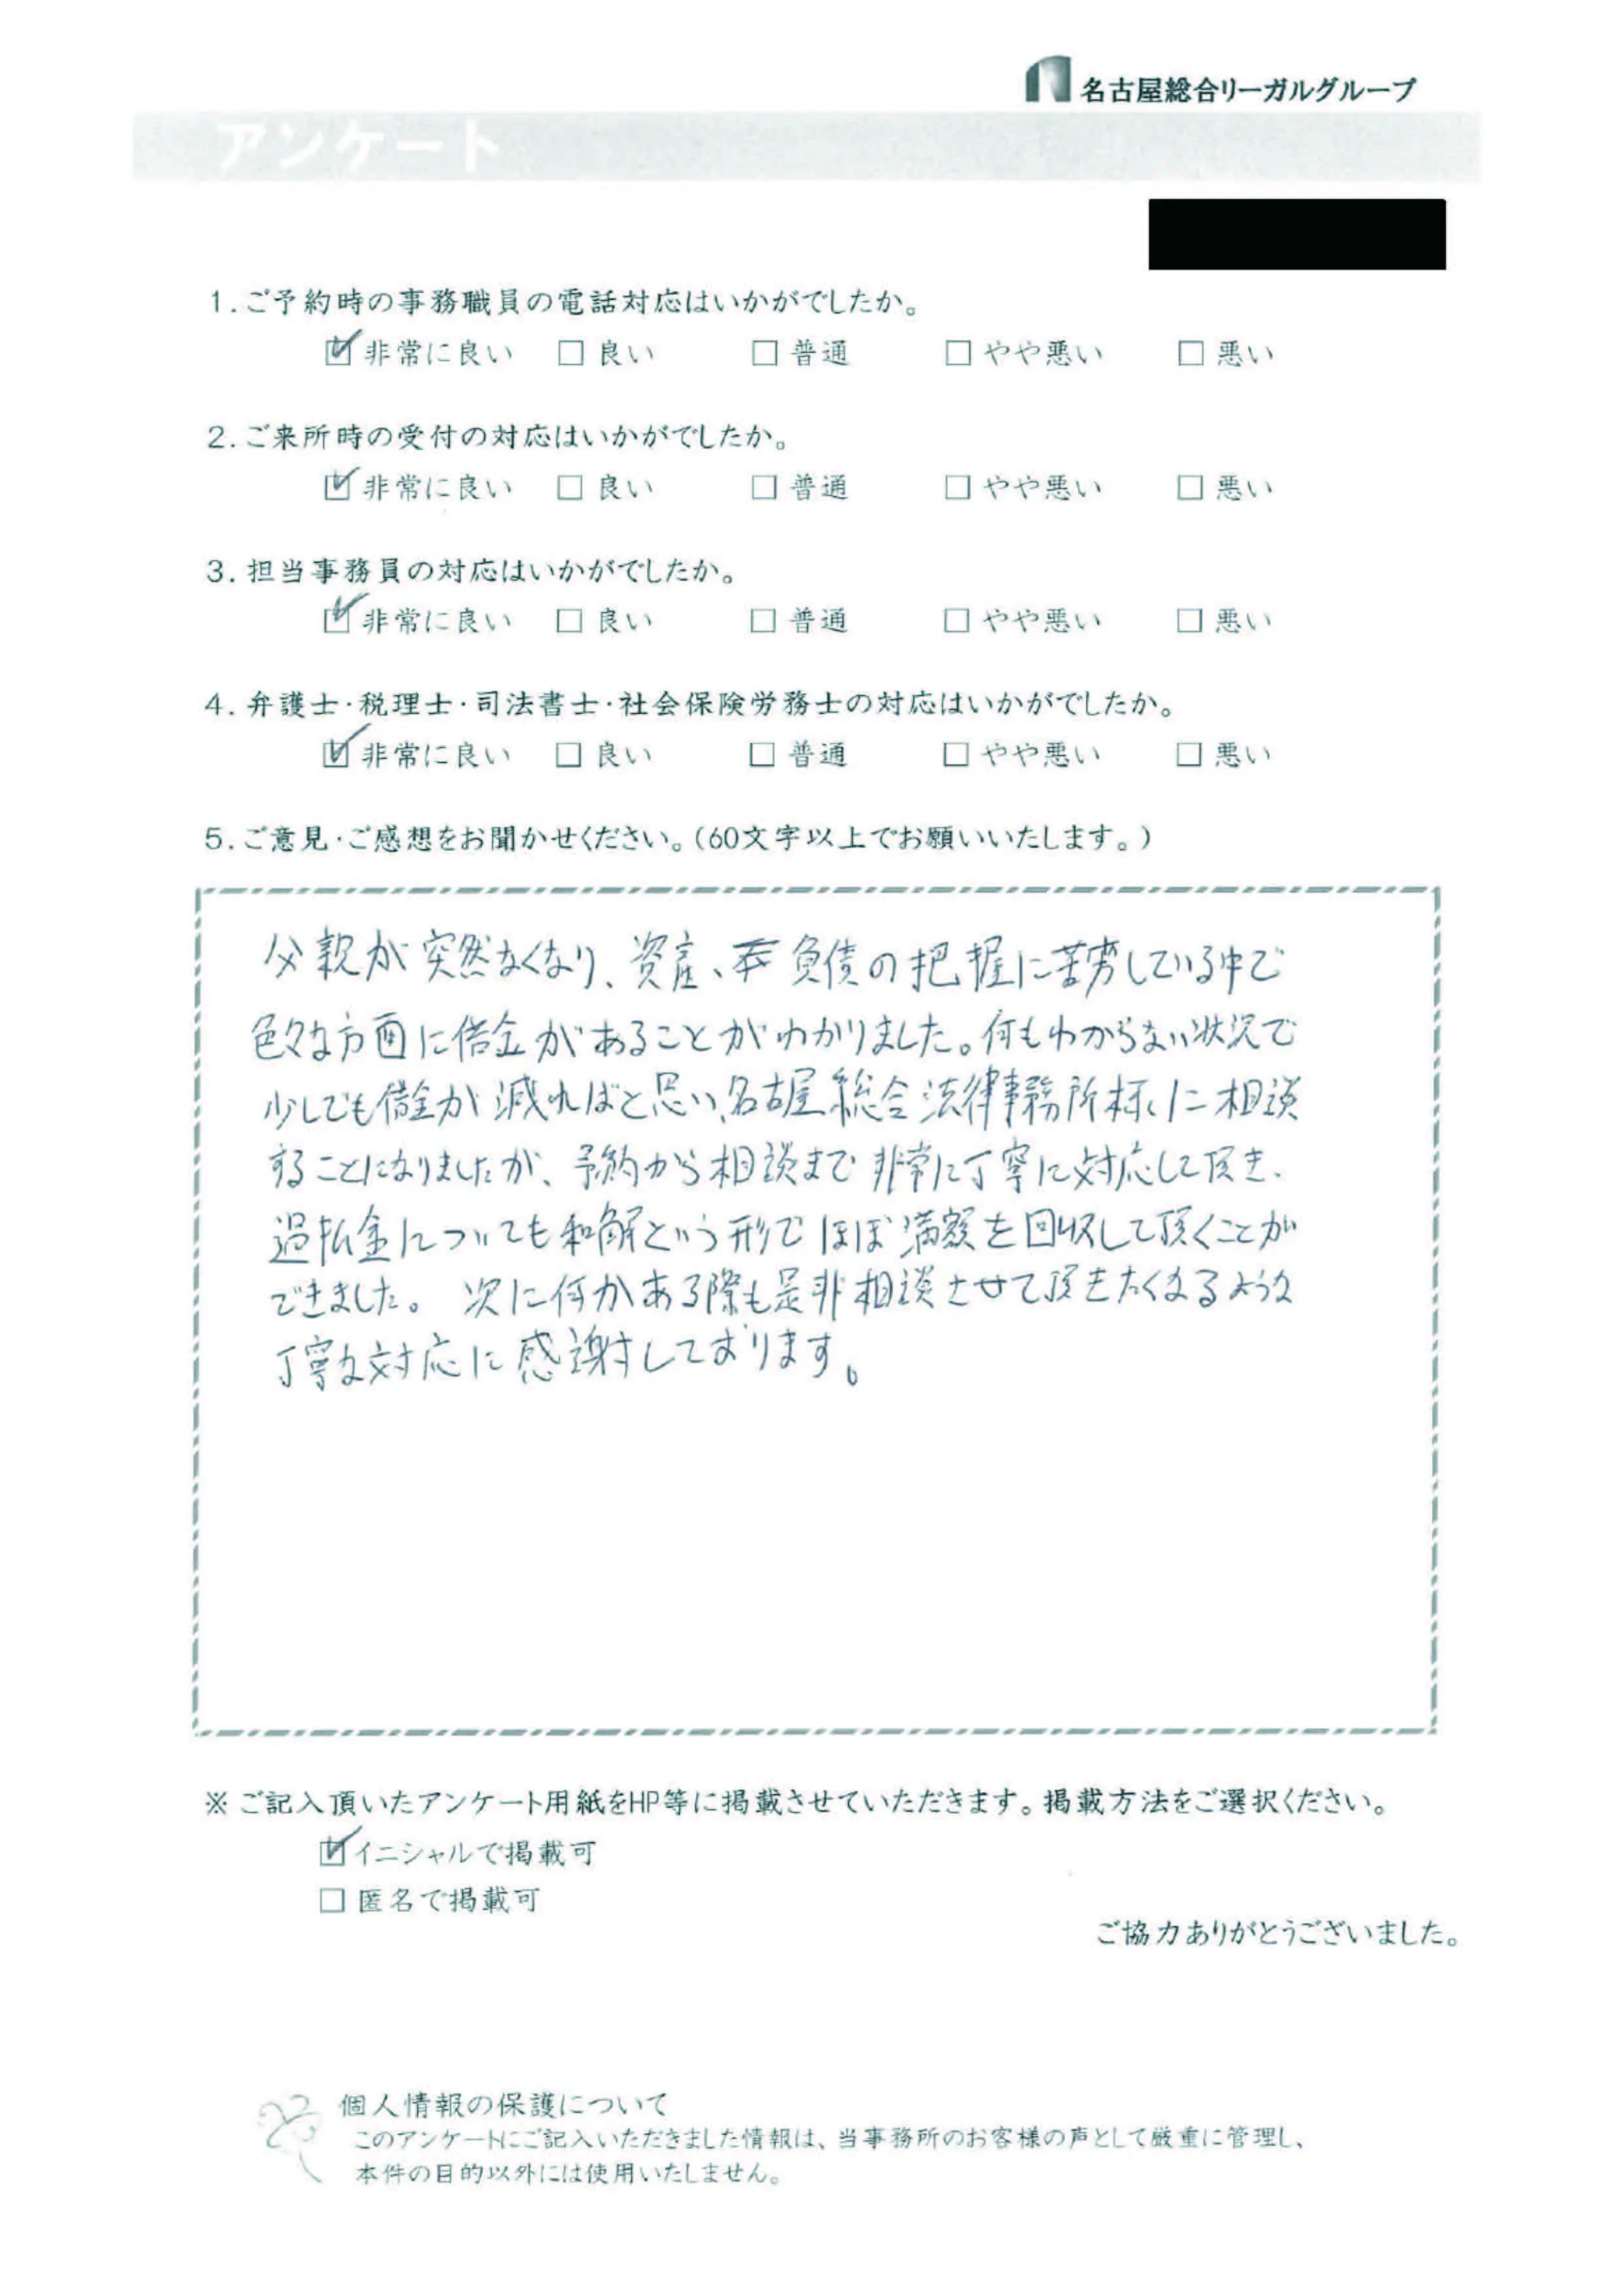 名古屋総合リーガルグループ
アンケート
1.ご予約時の事務職員の電話対応はいかがでしたか。
☑非常に良い □良い □普通 □やや悪い □悪い
2.ご来所時の受付の対応はいかがでしたか。
☑非常に良い □良い □普通 □やや悪い □悪い
3.担当事務員の対応はいかがでしたか。
☑非常に良い □良い □普通 □やや悪い □悪い
4.弁護士・税理士・司法書士・社会保険労務士の対応はいかがでしたか。
☑非常に良い □良い □普通 □やや悪い □悪い
5.ご意見・ご感想をお聞かせください。(60文字以上でお願いいたします。)
父親が突然なくなり、資産、負債の把握に苦労している中で
色々な方面に借金があることがわかりました。何もわからない状況で
少しでも借金が減ればと思い、名古屋総合法律事務所様に相談
することになりましたが、予約から相談まで非常に丁寧に対応して頂き、
過払金についても和解という形でほぼ満額を回収して頂くことが
できました。次に何かある際も是非相談させて頂きたくなるような
丁寧な対応に感謝しております。
※ご記入頂いたアンケート用紙をHP等に掲載させていただきます。掲載方法をご選択ください。
☑イニシャルで掲載可
□匿名で掲載可
ご協力ありがとうございました。
個人情報の保護について
このアンケートにご記入いただきました情報は、当事務所のお客様の声として厳重に管理し、
本件の目的以外には使用いたしません。